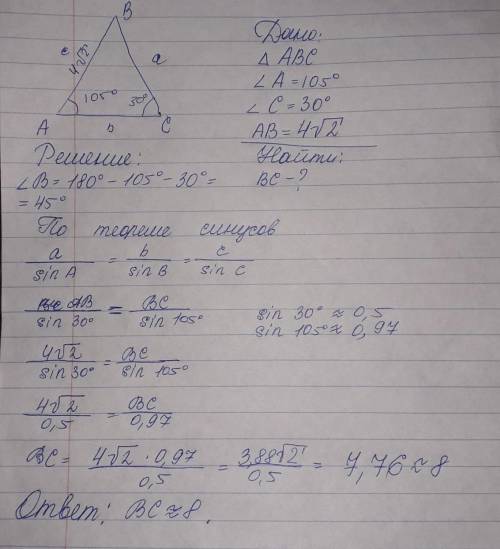 B
c
4√2
a
105°
30°
A
b
C
Дано:
△ ABC
∠A = 105°
∠C = 30°
AB = 4√2
Найти:
BC - ?
Решение:
∠B = 180° - 105° - 30° =
= 45°
По теореме синусов
a/sin A = b/sin B = c/sin C
AB/sin 30° = BC/sin 105°
sin 30° ≈ 0,5
sin 105° ≈ 0,97
4√2/sin 30° = BC/sin 105°
4√2/0,5 = BC/0,97
BC = 4√2 · 0,97/0,5 = 3,88√2/0,5 = 7,76 ≈ 8
Ответ: BC ≈ 8.